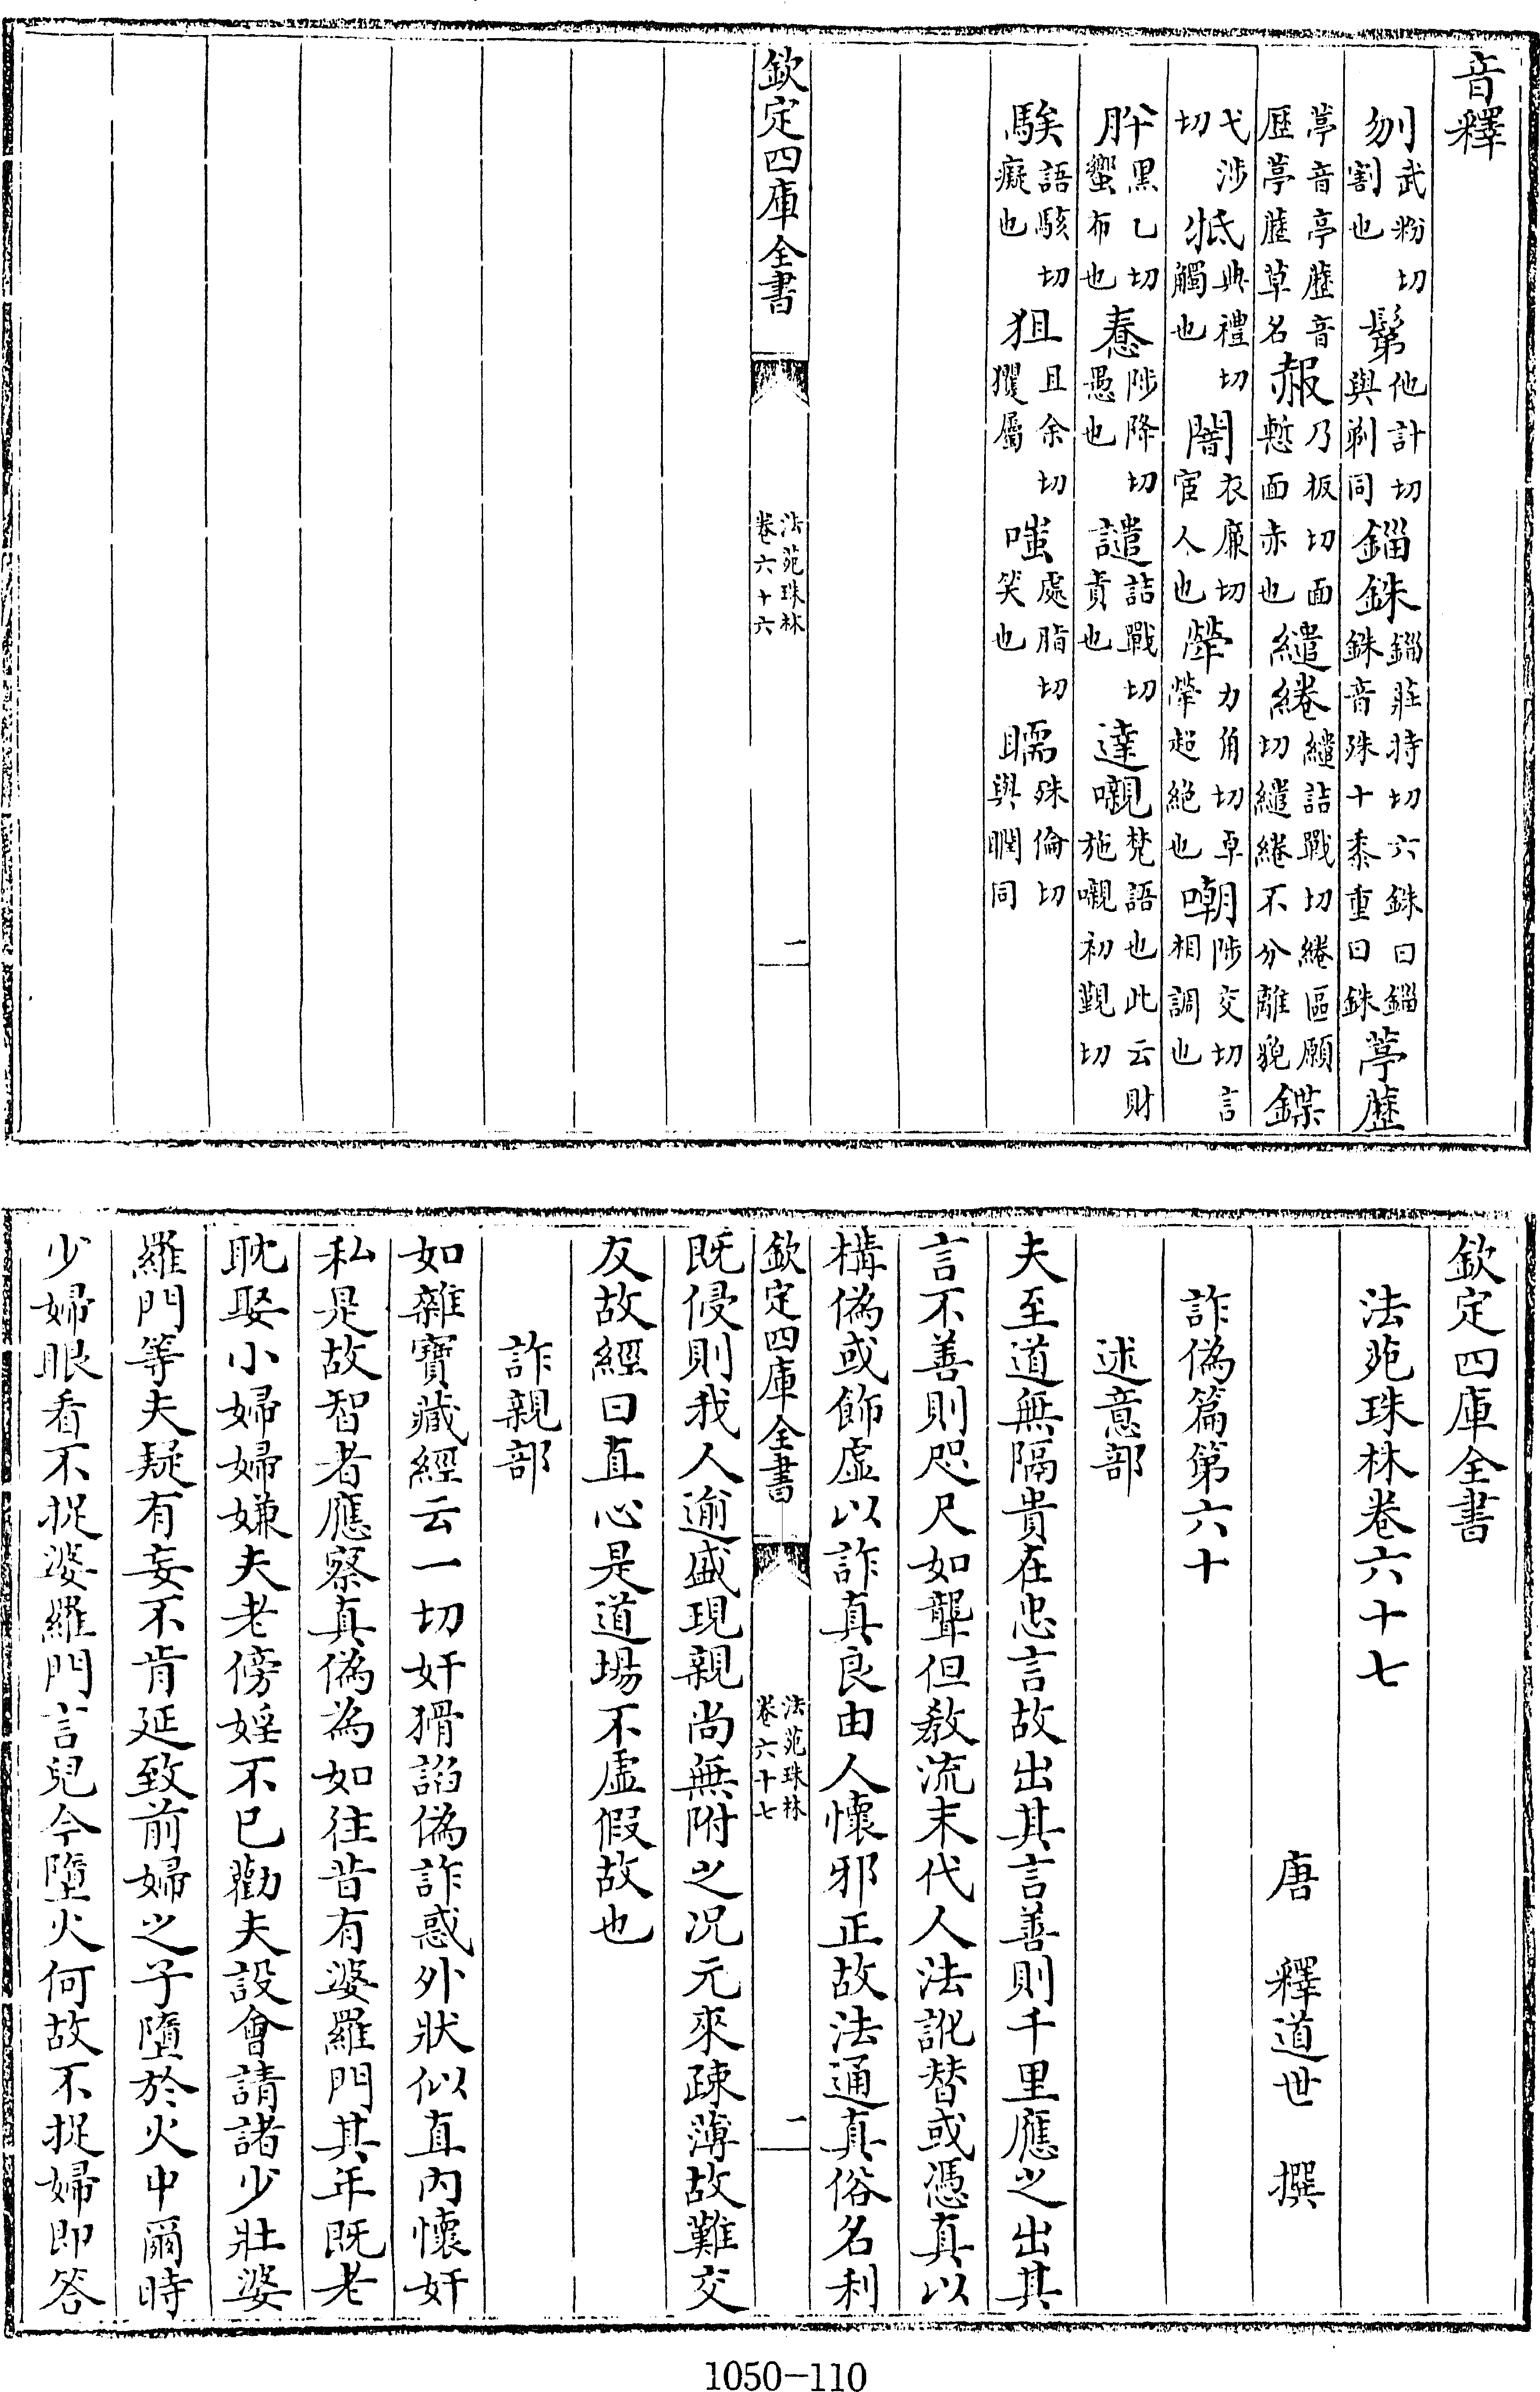 音釋
刎武粉切割也鬀他計切與剃同錙銖錙莊持切六銖曰錙銖音殊十黍重曰銖葶藶
葶音亭藶音歷葶藶草名赧乃板切面慙面赤也繾綣繾詰戰切綣區願切繾綣不分離貌鍱
弋涉切牴典禮切觸也閹衣廉切宦人也犖力角切卓犖超絶也嘲陟交切言相調也
肸黑乙切蠁布也惷陟降切愚也譴詰戰切責也達嚫梵語也此云財施嚫初覲切
騃語駭切癡也狙且余切玃屬嗤處脂切笑也瞤殊倫切與瞤同
欽定四庫全書 法苑珠林卷六十六 二
欽定四庫全書
法苑珠林卷六十七
唐 釋道世 撰
詐偽篇第六十
述意部
夫至道無隔貴在忠言故出其言善則千里應之出其
言不善則咫尺如聾但教流末代人法訛替或憑真以
構偽或飾虛以詐真良由人懷邪正故法通真俗名利
欽定四庫全書 法苑珠林卷六十七 二
既侵則我人逾盛現親尚無附之况元來疎薄故難交
友故經曰直心是道場不虛假故也
詐親部
如雜寶藏經云一切奸猾諂偽詐惑外狀似直內懷奸
私是故智者應察真偽為如往昔有婆羅門其年既老
耽娶小婦婦嫌夫老傍婬不已勸夫設會請諸少壯婆
羅門等夫疑有妄不肯延致前婦之子墮於火中爾時
少婦眼看不捉婆羅門言兒今墮火何故不捉婦即答
1050-110